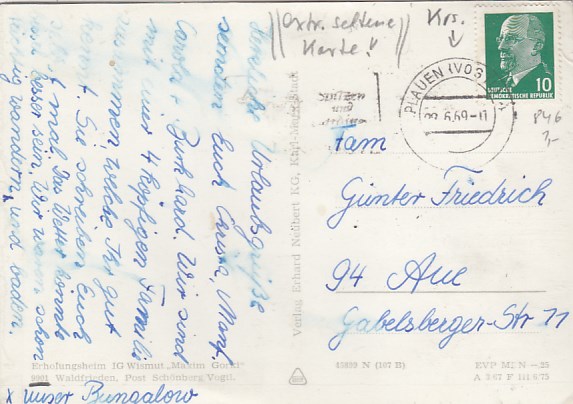 Herzliche Urlaubsgrüße
senden Euch Christa, Manf.
Carola + Burkhard. Wir sind
mit einer 4 köpfigen Familie
zusammen welche Ihr gut
kennt. Sie schreiben Euch
mal. Das Wetter könnte
besser sein. Wir waren schon
wandern und baden.
Erholungsheim IG Wismut „Maxim Gorki"
9901 Waldfrieden, Post Schönberg/Vogtl.
x unser Bungalow
Verlag Erhard Neubert KG, Karl-Marx-Stadt
extr. seltene
Karte!
Krs.
PLAUEN (VOGTL
22.6.69-11
DEUTSCHE
DEMOKRATISCHE REPUBLIK
10
P46
Fam
Günter Friedrich
94 Aue
Gabelsberger-Str 11
EVP MDN -,25